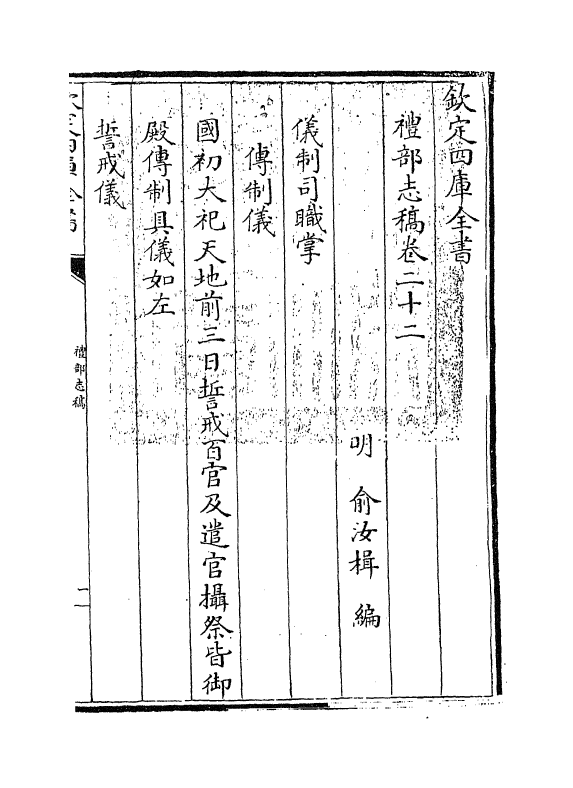 欽定四庫全書
禮部志稿卷二十二
明 俞汝楫 編
儀制司職掌
傳制儀
國初大祀天地前三日誓戒百官及遣官攝祭皆御
殿傳制具儀如左
誓戒儀
禮部志稿